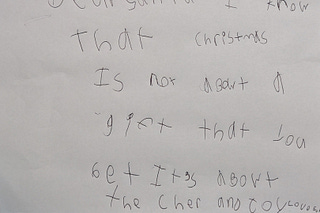 I know
that christmas
Is not about a
gift that you
get It's about
the cher and Joy